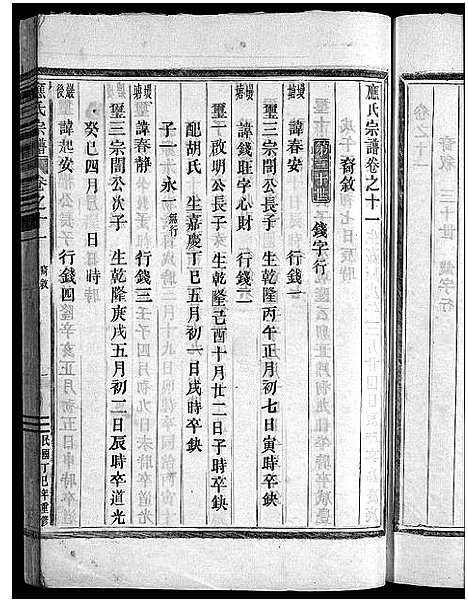 應氏宗譜卷之十一
裔敘
三十世 錢字行
堤塘 諱春安 行錢一
璽三宗閭公長子 生乾隆丙午正月初七日寅時卒缺
堤塘 諱錢旺字心財 行錢二
璽一啟明公長子 生乾隆己酉十月廿二日子時卒缺
配胡氏 生嘉慶丁巳五月初一日戌時卒缺
子一 永一 無行
堤塘 諱春靜 行錢三
璽三宗閭公次子 生乾隆庚戌五月初二日辰時卒道光
癸巳四月 日 時
巖後 諱起安 行錢四
應氏宗譜 卷之十一 裔敘 一 民國丁巳年重修